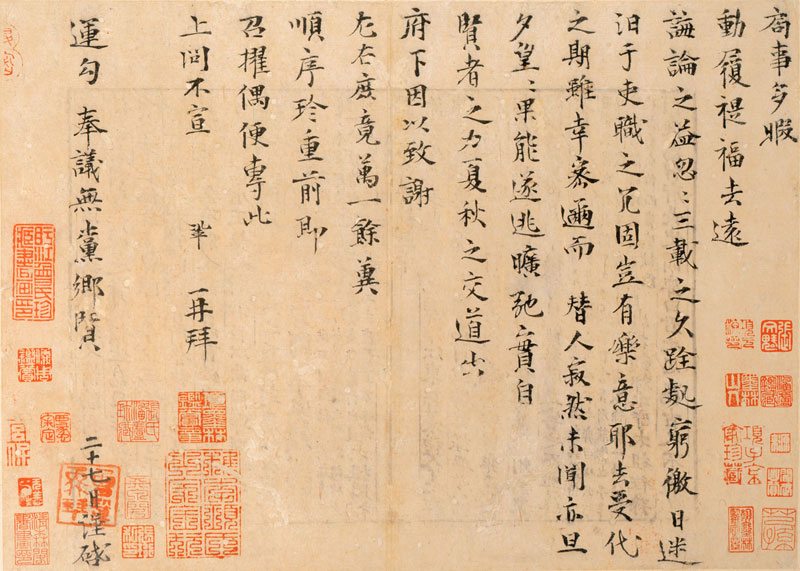 局事多暇
動履禔福去遠
誨論之益忽〻三載之久跧處窮徼日迷
汩于吏職之冗固岂有樂意耶去受代
之期雖幸密邇而替人寂然未聞亦旦
夕望〻果能遂逃曠弛實自
賢者之力夏秋之交道出
府下因以致謝
左右庶竟萬一餘冀
順序珍重前即
召擢偶便專此
上問不宣 鞏 再拜
運勾奉議無黨鄉賢
二十七日謹啟